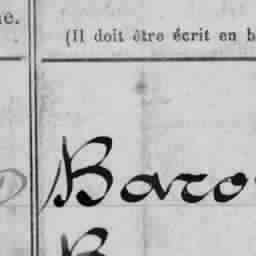 ne.
(Il doit être écrit en b
Baro
B